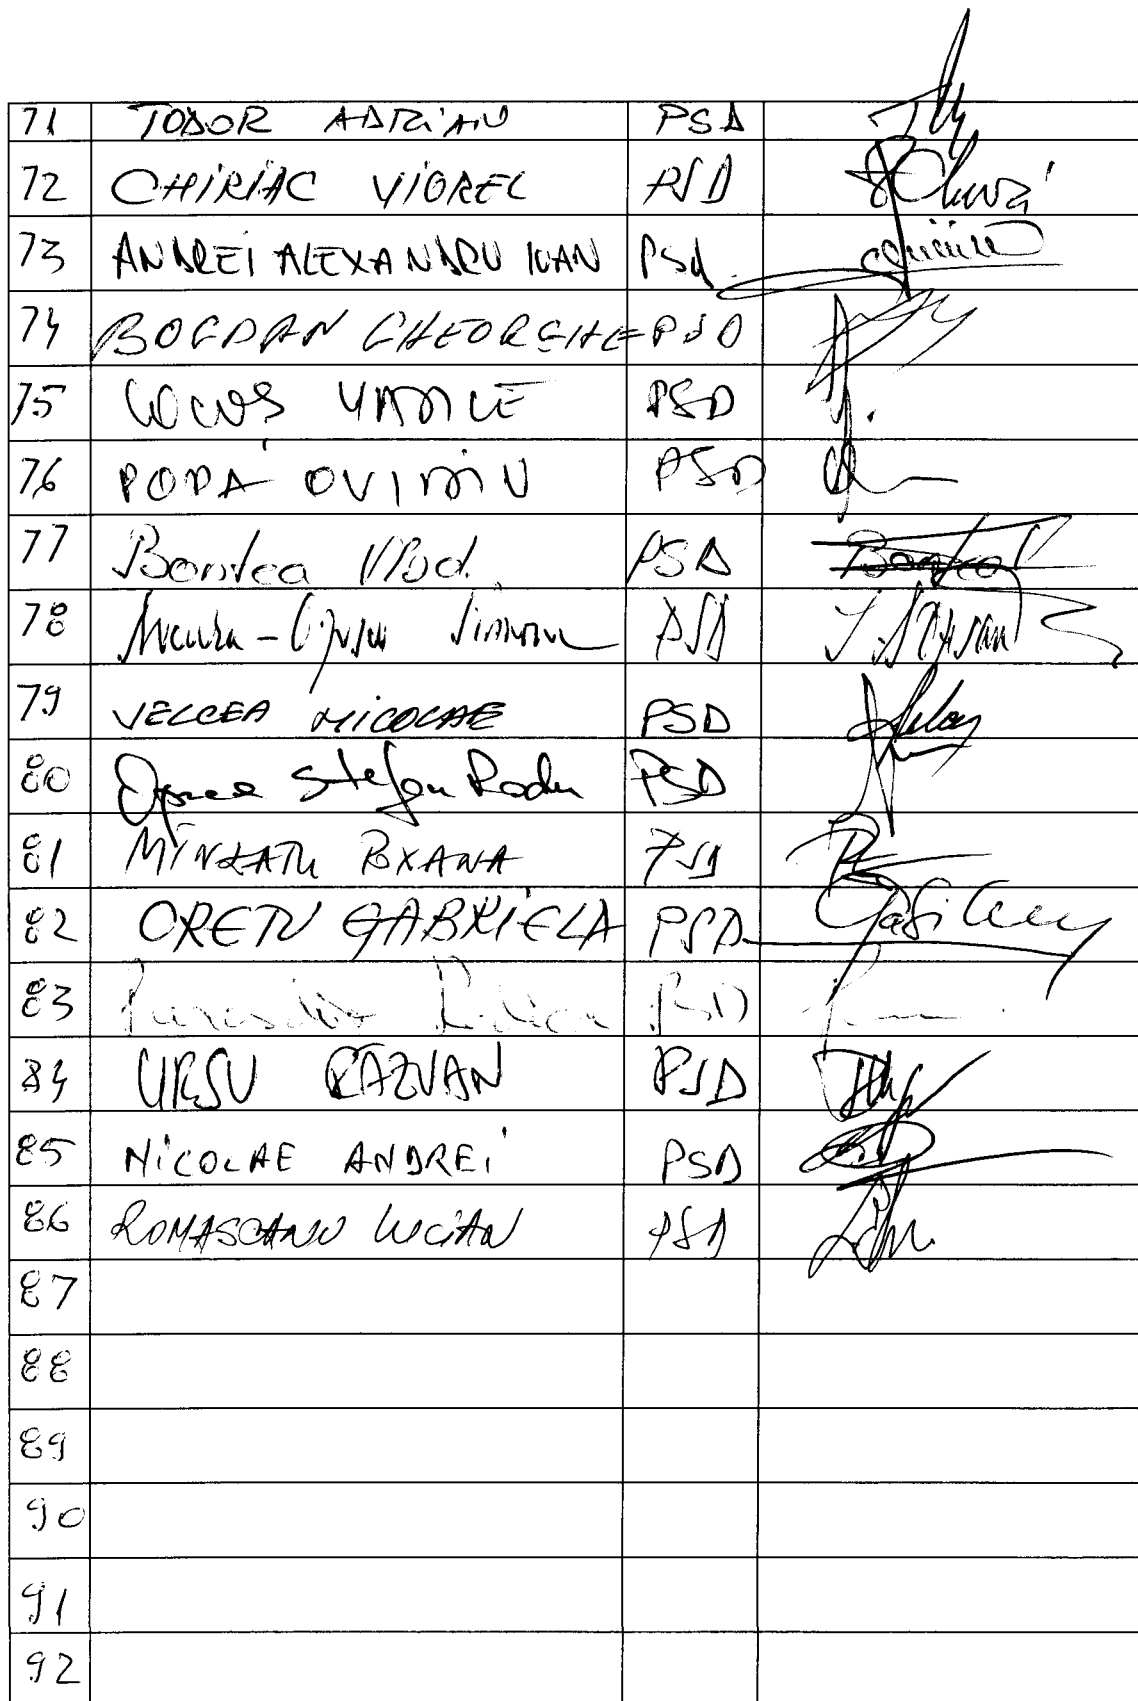 71 TODOR ADRIAN PSD
72 CHIRIAC VIOREL PSD
73 ANDREI ALEXANDRU IOAN PSD
74 BOGDAN GHEORGHE PSD
75 COCOȘ VASILE PSD
76 POPA OVIDIU PSD
77 Bontea Vlad PSD
78 PSD
79 VELCEA NICOLAE PSD
80 Oprea Stefan Radu PSD
81 MINZATU ROXANA PSD
82 CREȚU GABRIELA PSD
83 PSD
84 URSU RAZVAN PSD
85 NICOLAE ANDREI PSD
86 ROMASCANU LUCIAN PSD
87
88
89
90
91
92